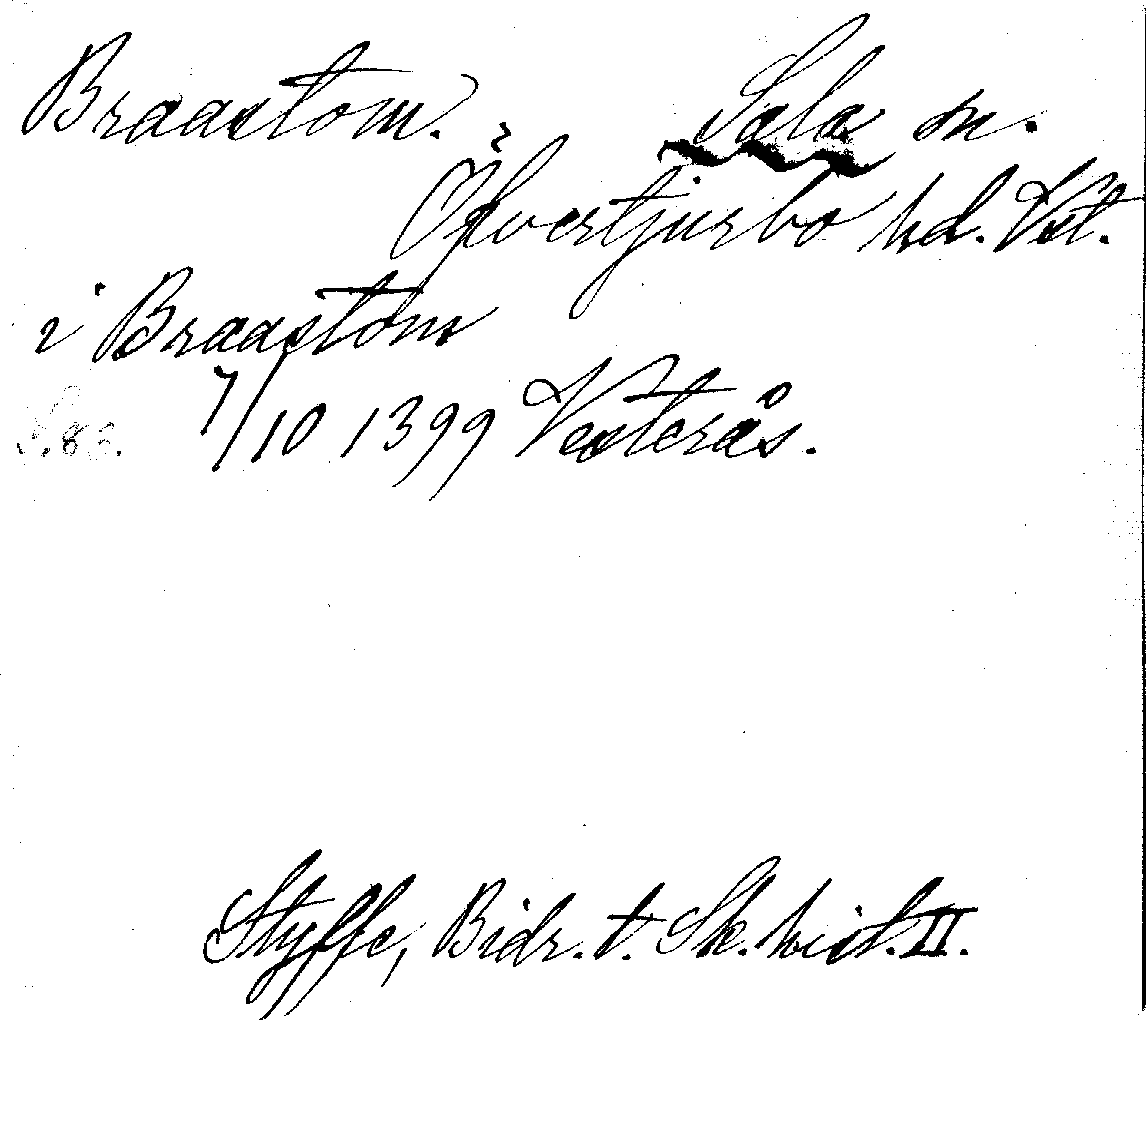 Braastom. Sala sn.
Öfvertjurbo hd. Vstl.
i Braastom
S. 83. 7/10 1399 Vesterås.
Styffe, Bidr. t. Sk. hist. II.